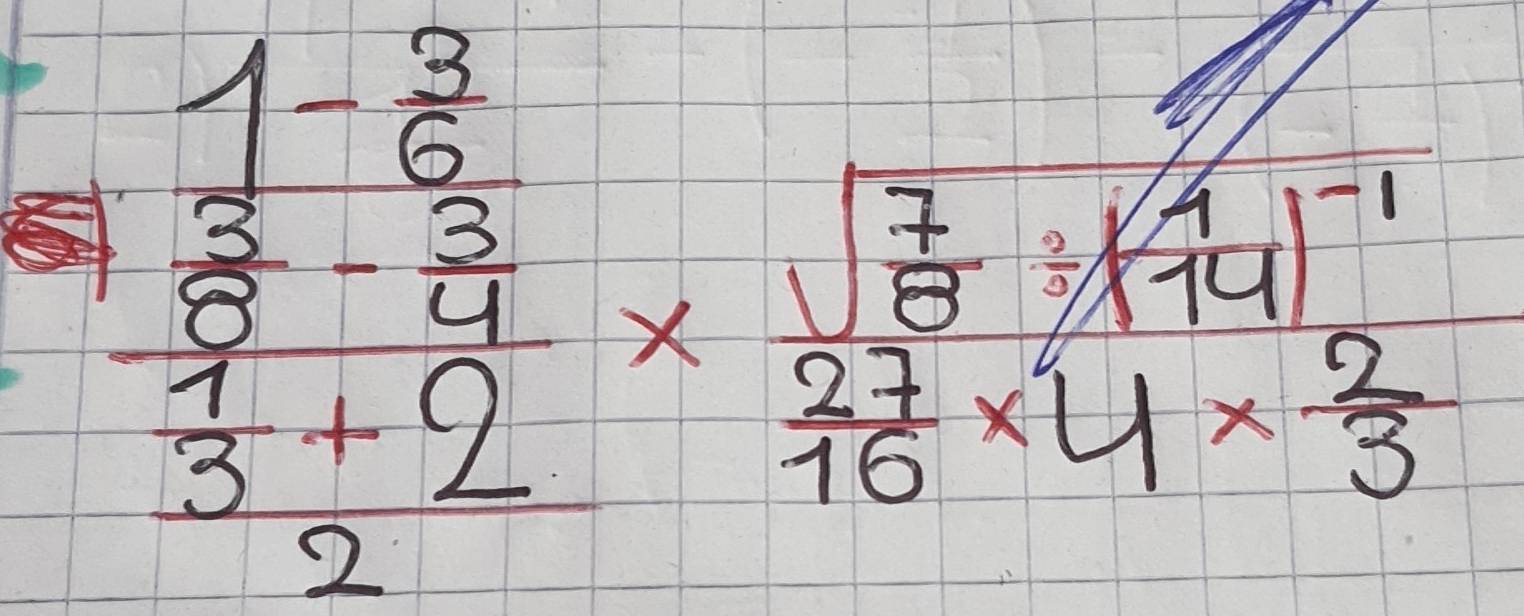 1 - 3/6
3/8 - 3/4
1/3 + 2
2
×
√(7/8 ÷ (1/14)⁻¹)
27/16 × 4 × 2/3